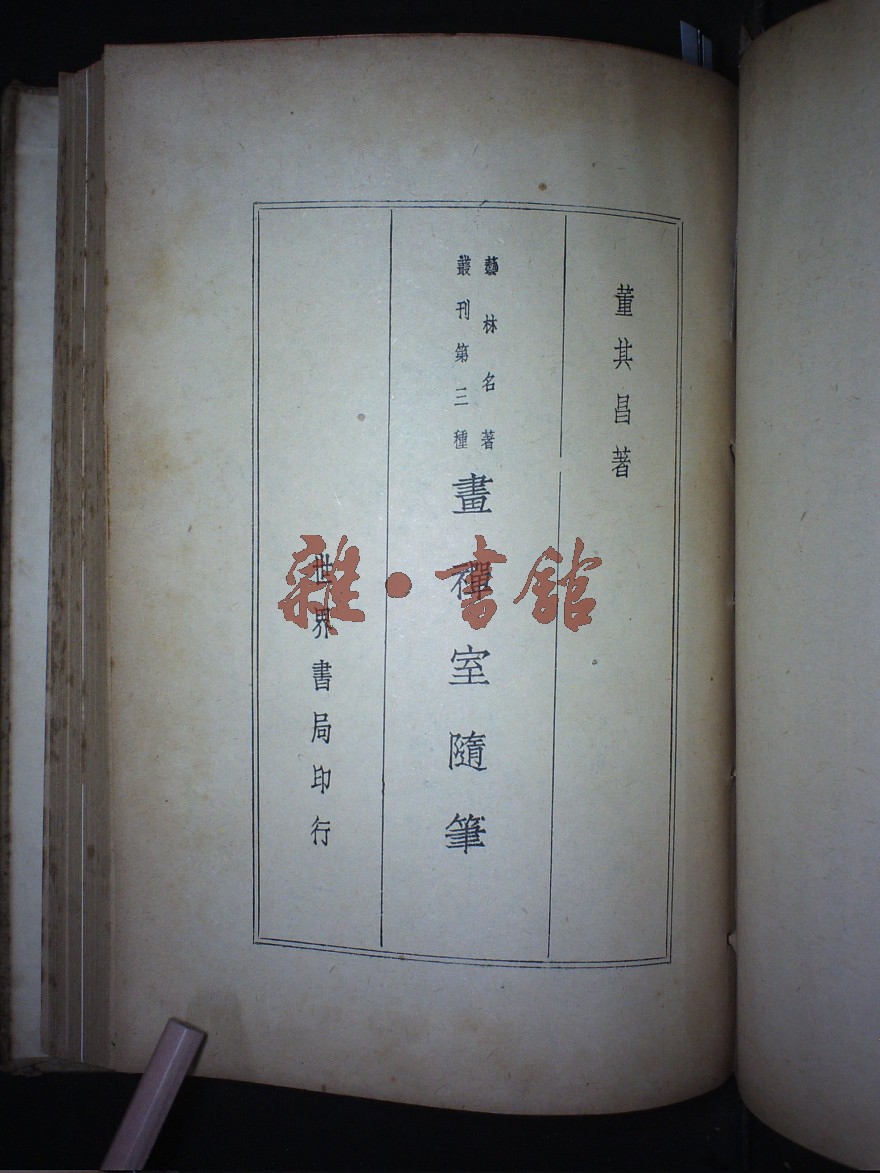 董其昌著
藝林名著
叢刊第三種
畫禪室隨筆
世界書局印行
雜·書館